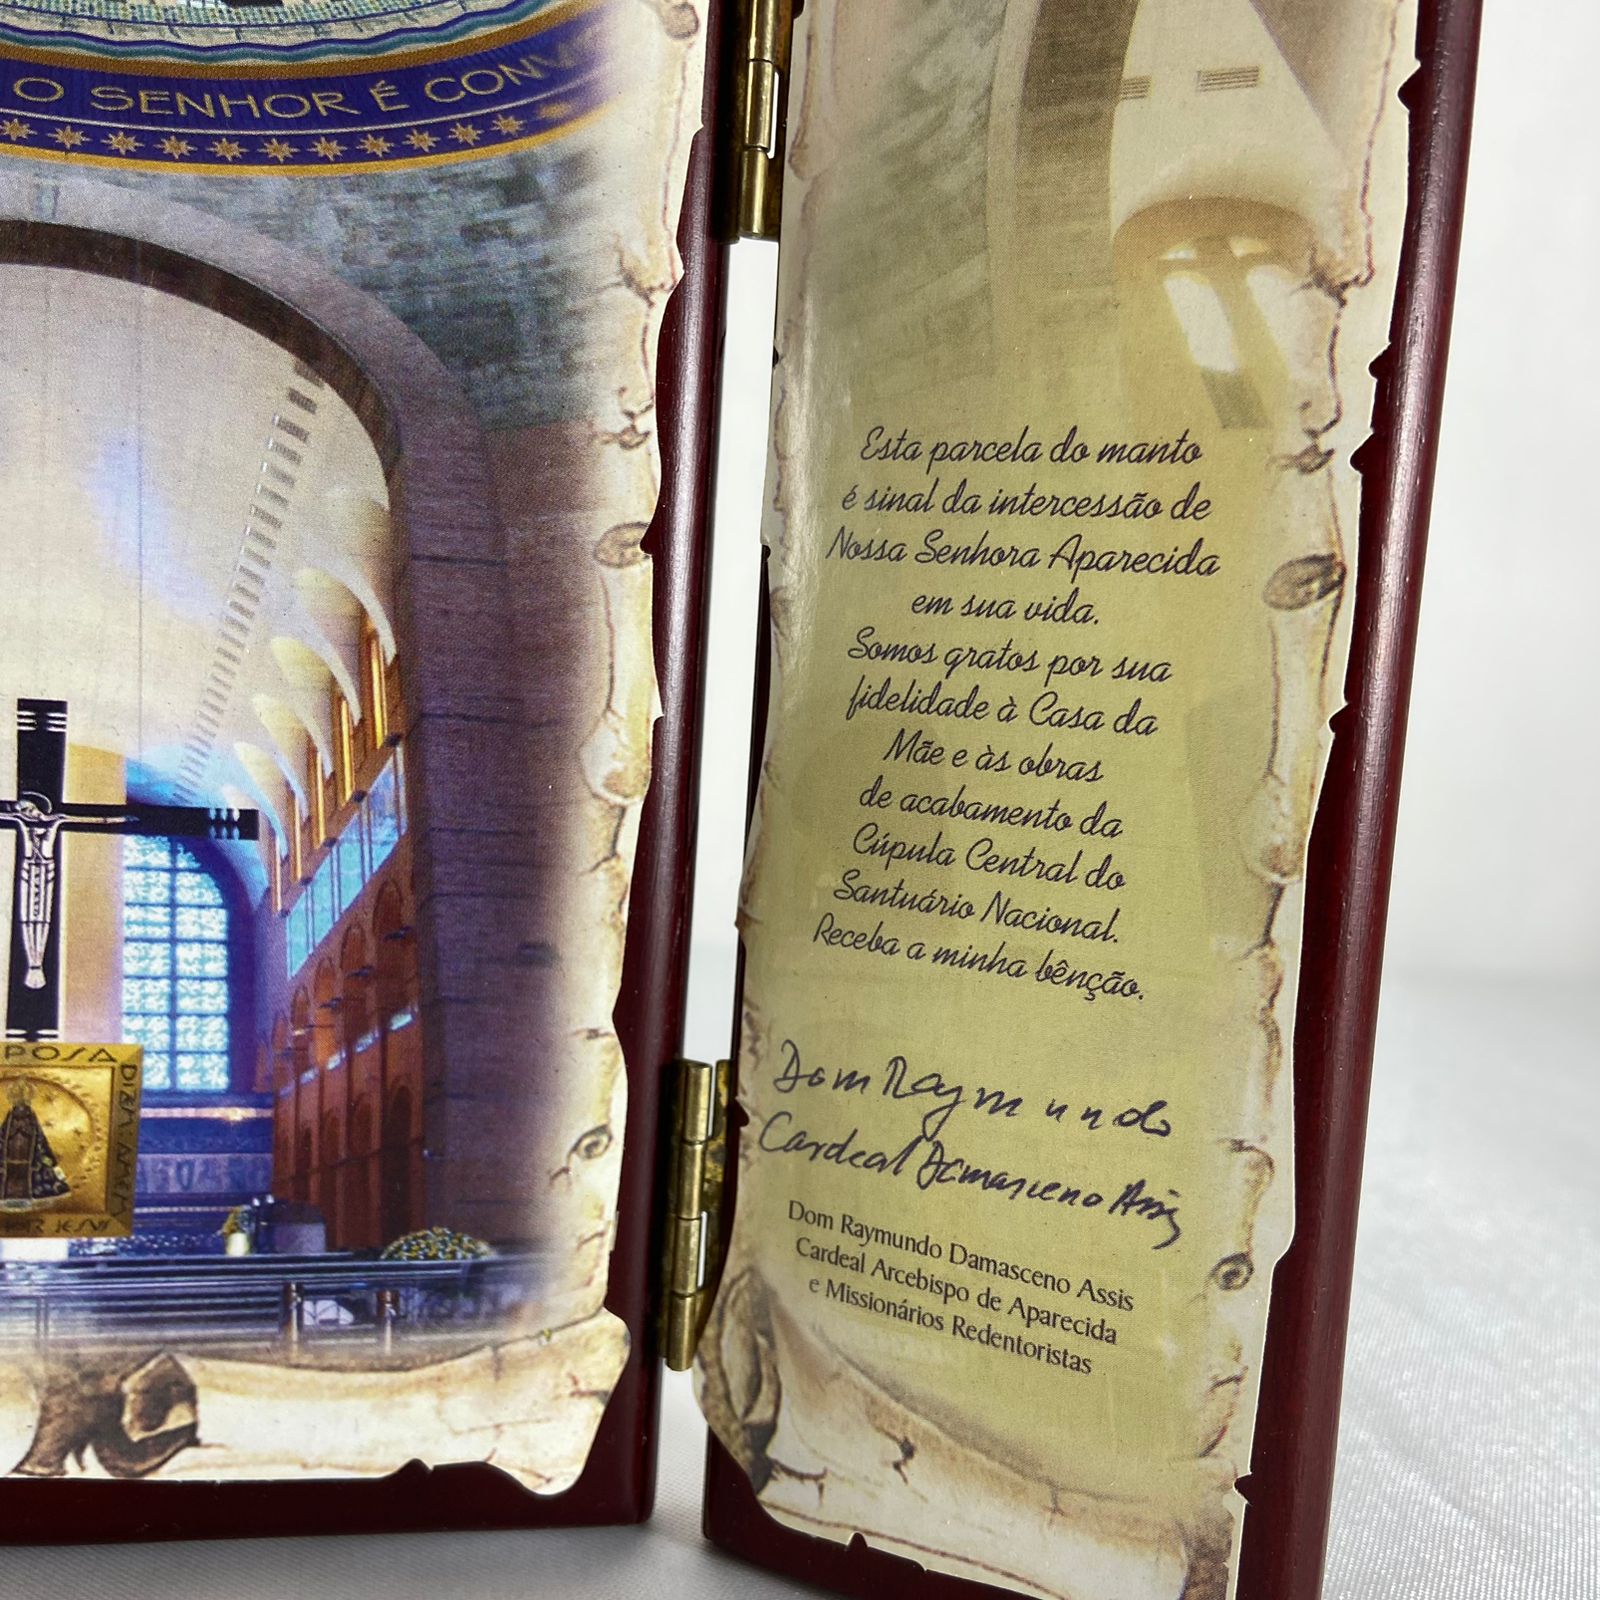 O SENHOR É CONV
POSA
DIZ: AMÉM
HOR JESUS
Esta parcela do manto
é sinal da intercessão de
Nossa Senhora Aparecida
em sua vida.
Somos gratos por sua
fidelidade à Casa da
Mãe e às obras
de acabamento da
Cúpula Central do
Santuário Nacional.
Receba a minha bênção.
Dom Raymundo
Cardeal Damasceno Assis
Dom Raymundo Damasceno Assis
Cardeal Arcebispo de Aparecida
e Missionários Redentoristas